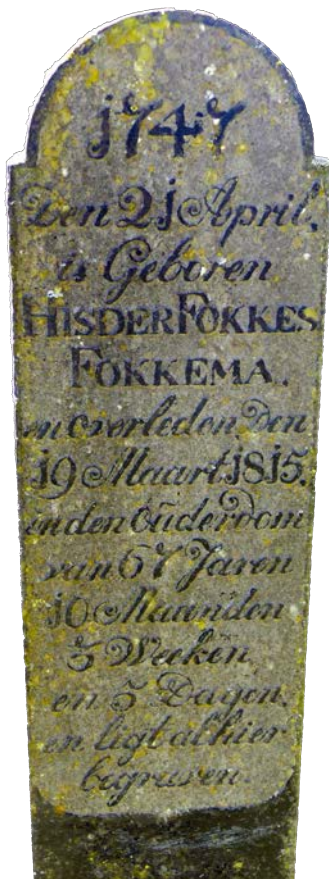 1747
Den 21 April.
is Geboren
HISDER FOKKES
FOKKEMA.
en overleden, Den
19 Maart 1815.
inden Ouderdom
van 67 Jaren
10 Maanden
3 Weeken,
en 5 Dagen.
en ligt alhier
begraven.